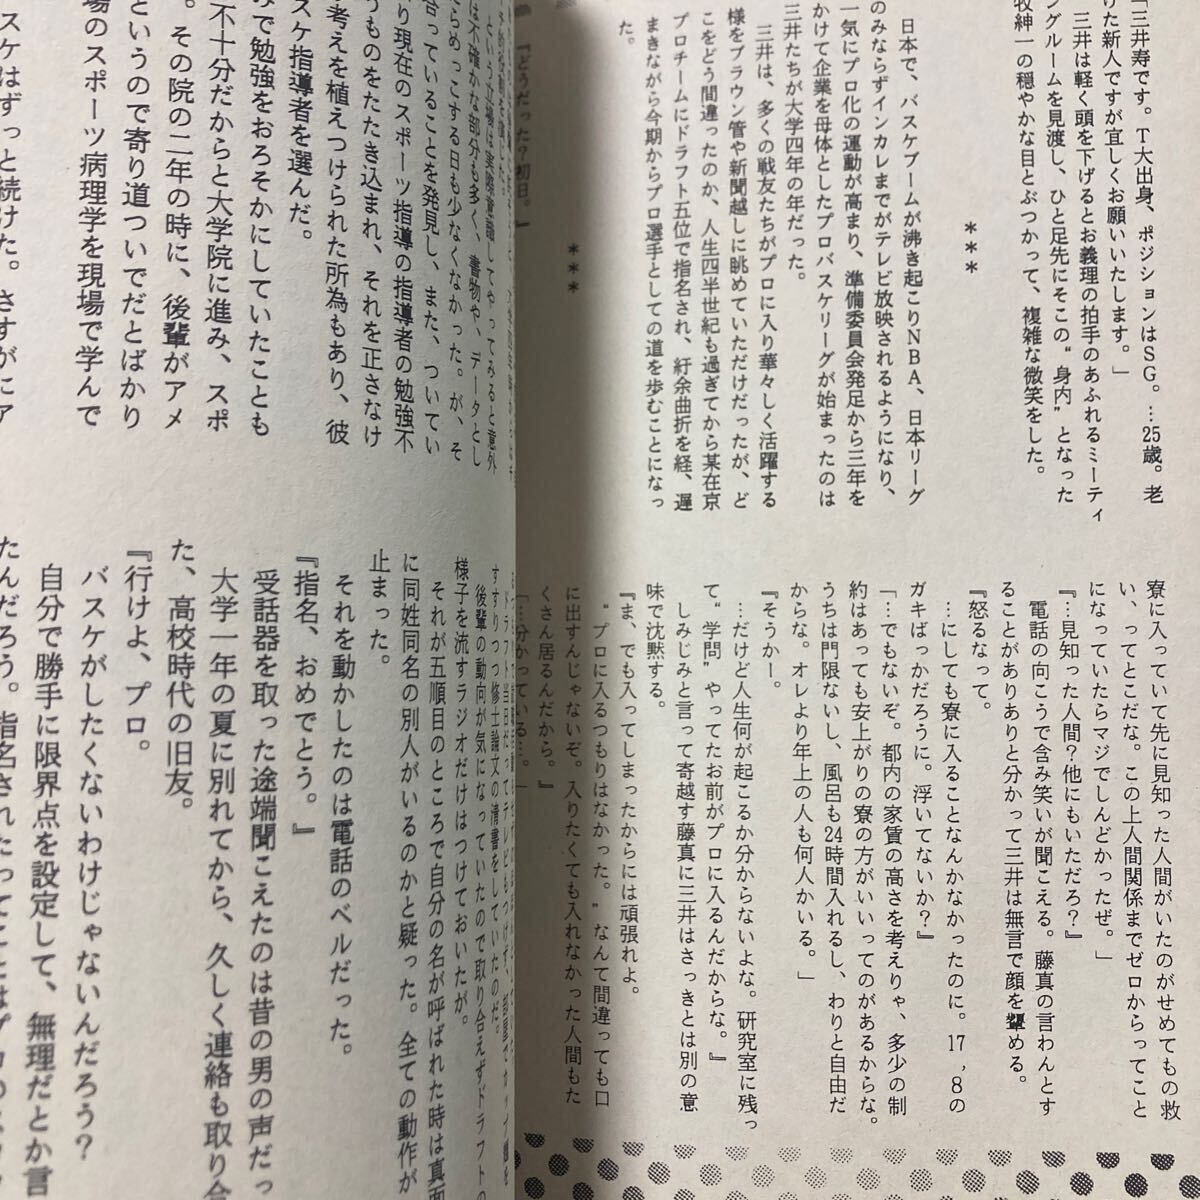 「三井寿です。T大出身、ポジションはSG。…25歳。老
けた新人ですが宜しくお願いいたします。」
三井は軽く頭を下げるとお義理の拍手のあふれるミーティ
ングルームを見渡し、ひと足先にそこの“身内”となった
牧紳一の穏やかな目とぶつかって、複雑な微笑をした。
***
日本で、バスケブームが沸き起こりNBA、日本リーグ
のみならずインカレまでがテレビ放映されるようになり、
一気にプロ化の運動が高まり、準備委員会発足から三年を
かけて企業を母体としたプロバスケリーグが始まったのは
三井たちが大学四年の年だった。
三井は、多くの戦友たちがプロに入り華々しく活躍する
様をブラウン管や新聞越しに眺めていただけだったが、ど
こをどう間違ったのか、人生四半世紀も過ぎてから某在京
プロチームにドラフト五位で指名され、紆余曲折を経、遅
まきながら今期からプロ選手としての道を歩むことになっ
た。
***
『どうだった?初日。』
寮に入っていて先に見知った人間がいたのがせめてもの救
い、ってとこだな。この上人間関係までゼロからってこと
になっていたらマジでしんどかったぜ。」
『…見知った人間?他にもいただろ?』
電話の向こうで含み笑いが聞こえる。藤真の言わんとす
ることがありありと分かって三井は無言で顔を顰める。
『怒るなって。
…にしても寮に入ることなんかなかったのに。17,8の
ガキばっかだろうに。浮いてないか?』
「…でもないぞ。都内の家賃の高さを考えりゃ、多少の制
約はあっても安上がりの寮の方がいいってのがあるからな。
うちは門限ないし、風呂も24時間入れるし、わりと自由だ
からな。オレより年上の人も何人かいる。」
『そうかー。
…だけど人生何が起こるか分からないよな。研究室に残っ
て“学問”やってたお前がプロに入るんだからな。』
しみじみと言って寄越す藤真に三井はさっきとは別の意
味で沈黙する。
『ま、でも入ってしまったからには頑張れよ。
“プロに入るつもりはなかった。”なんて間違っても口
に出すんじゃないぞ。入りたくても入れなかった人間もた
くさん居るんだから。』
「…分かっている…。」
という立場は実際意識してやってみると意外
は不確かな部分も多く、書物や、データとし
らめっこする日も少なくなかった。が、そ
合っていることを発見し、また、ついてい
り現在のスポーツ指導の指導者の勉強不
うものをたたき込まれ、それを正さなけ
考えを植えつけられた所為もあり、彼
スケ指導者を選んだ。
で勉強をおろそかにしていたことも
不十分だからと大学院に進み、スポ
。その院の二年の時に、後輩がアメ
というので寄り道ついでだとばかり
場のスポーツ病理学を現場で学んで
スケはずっと続けた。さすがにア
すすりつつ修士論文の清書をしていたのだ。
後輩の動向が気になっていたので取り合えずドラフトの
様子を流すラジオだけはつけておいたが。
それが五順目のところで自分の名が呼ばれた時は真面
に同姓同名の別人がいるのかと疑った。全ての動作が
止まった。
それを動かしたのは電話のベルだった。
『指名、おめでとう。』
受話器を取った途端聞こえたのは昔の男の声だっ
大学一年の夏に別れてから、久しく連絡も取り合
た、高校時代の旧友。
『行けよ、プロ。
バスケがしたくないわけじゃないんだろう?
自分で勝手に限界点を設定して、無理だとか言
たんだろう。指名されたってことはプロの